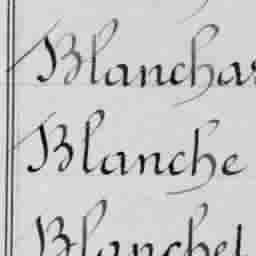 Blanchas
Blanche
Blanchet